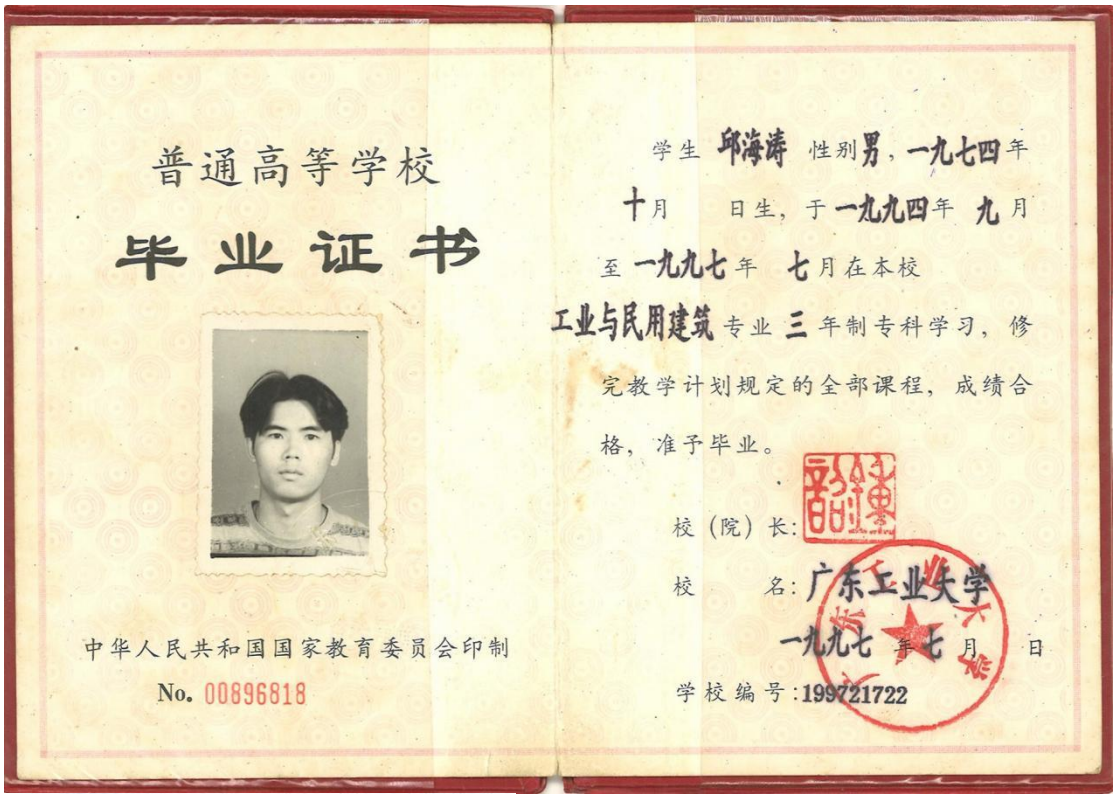 普通高等学校
毕业证书
中华人民共和国国家教育委员会印制
No. 00896818
学生 邱海涛 性别男，一九七四年
十月 日生，于一九九四年 九月
至一九九七年 七月在本校
工业与民用建筑专业三年制专科学习，修
完教学计划规定的全部课程，成绩合
格，准予毕业。
校（院）长：
校 名：广东工业大学
一九九七年七月 日
学校编号：199721722
广东工业大学